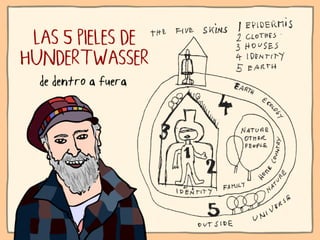 LAS 5 PIELES DE
HUNDERTWASSER
de dentro a fuera
THE FIVE SKINS
1 EPIDERMIS
2 CLOTHES
3 HOUSES
4 IDENTITY
5 EARTH
4
EARTH ECOLOGY
3
1
2
NATURE
OTHER
PEOPLE
IDENTITY
FAMILY
HOME COUNTRY
NATURE
5
OUTSIDE
UNIVERSE